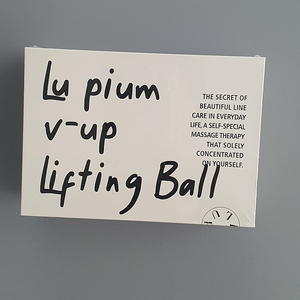 Lu pium
v-up
Lifting Ball
THE SECRET OF
BEAUTIFUL LINE
CARE IN EVERYDAY
LIFE, A SELF-SPECIAL
MASSAGE THERAPY
THAT SOLELY
CONCENTRATED
ON YOURSELF.